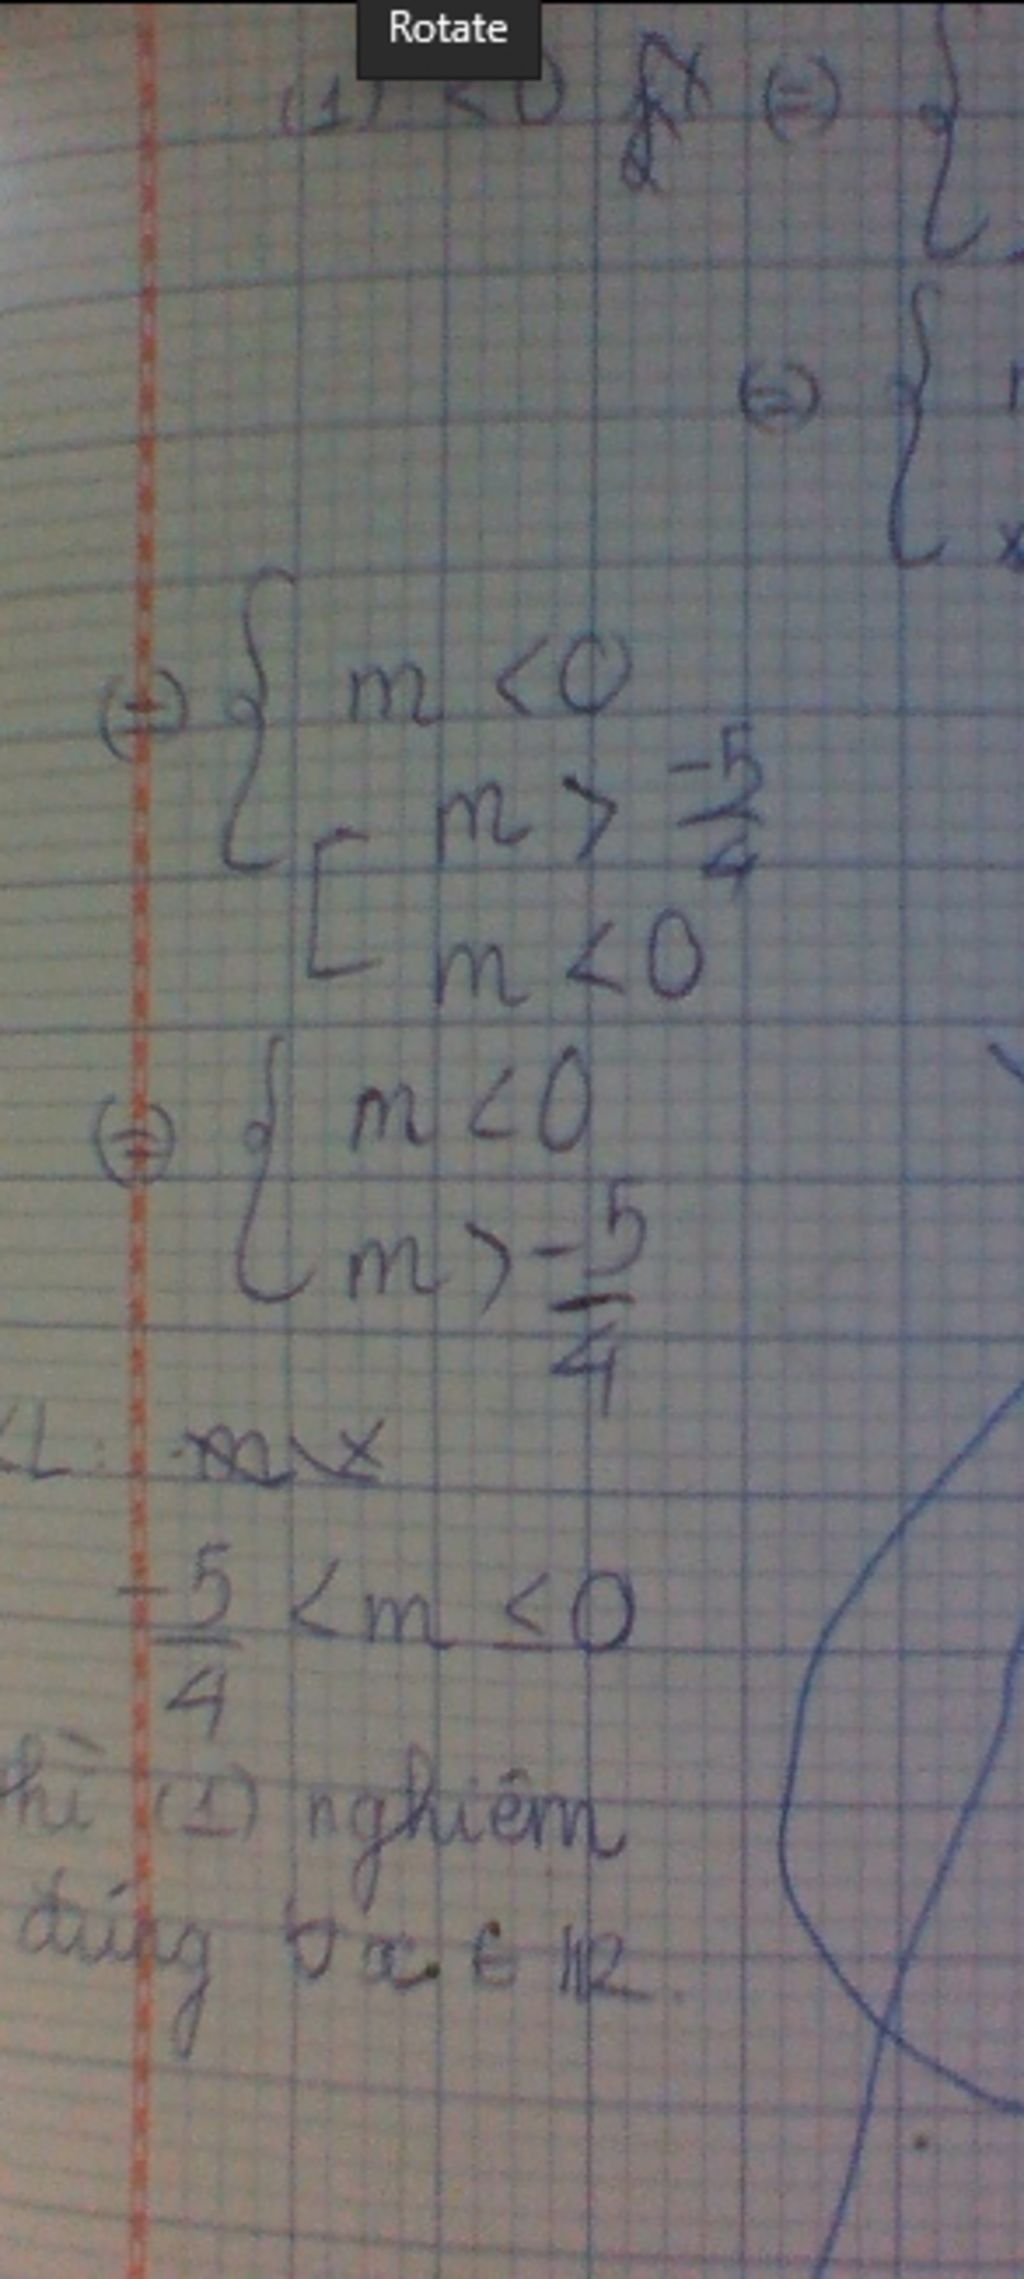 Rotate
(1) < 0 ∀x (=) {
(=) {
(=) { m < 0
[ m > -5/4
m < 0
(=) { m < 0
m > -5/4
KL:
-5/4 < m ≤ 0
thì (1) nghiêm
đúng ∀x ∈ IR.